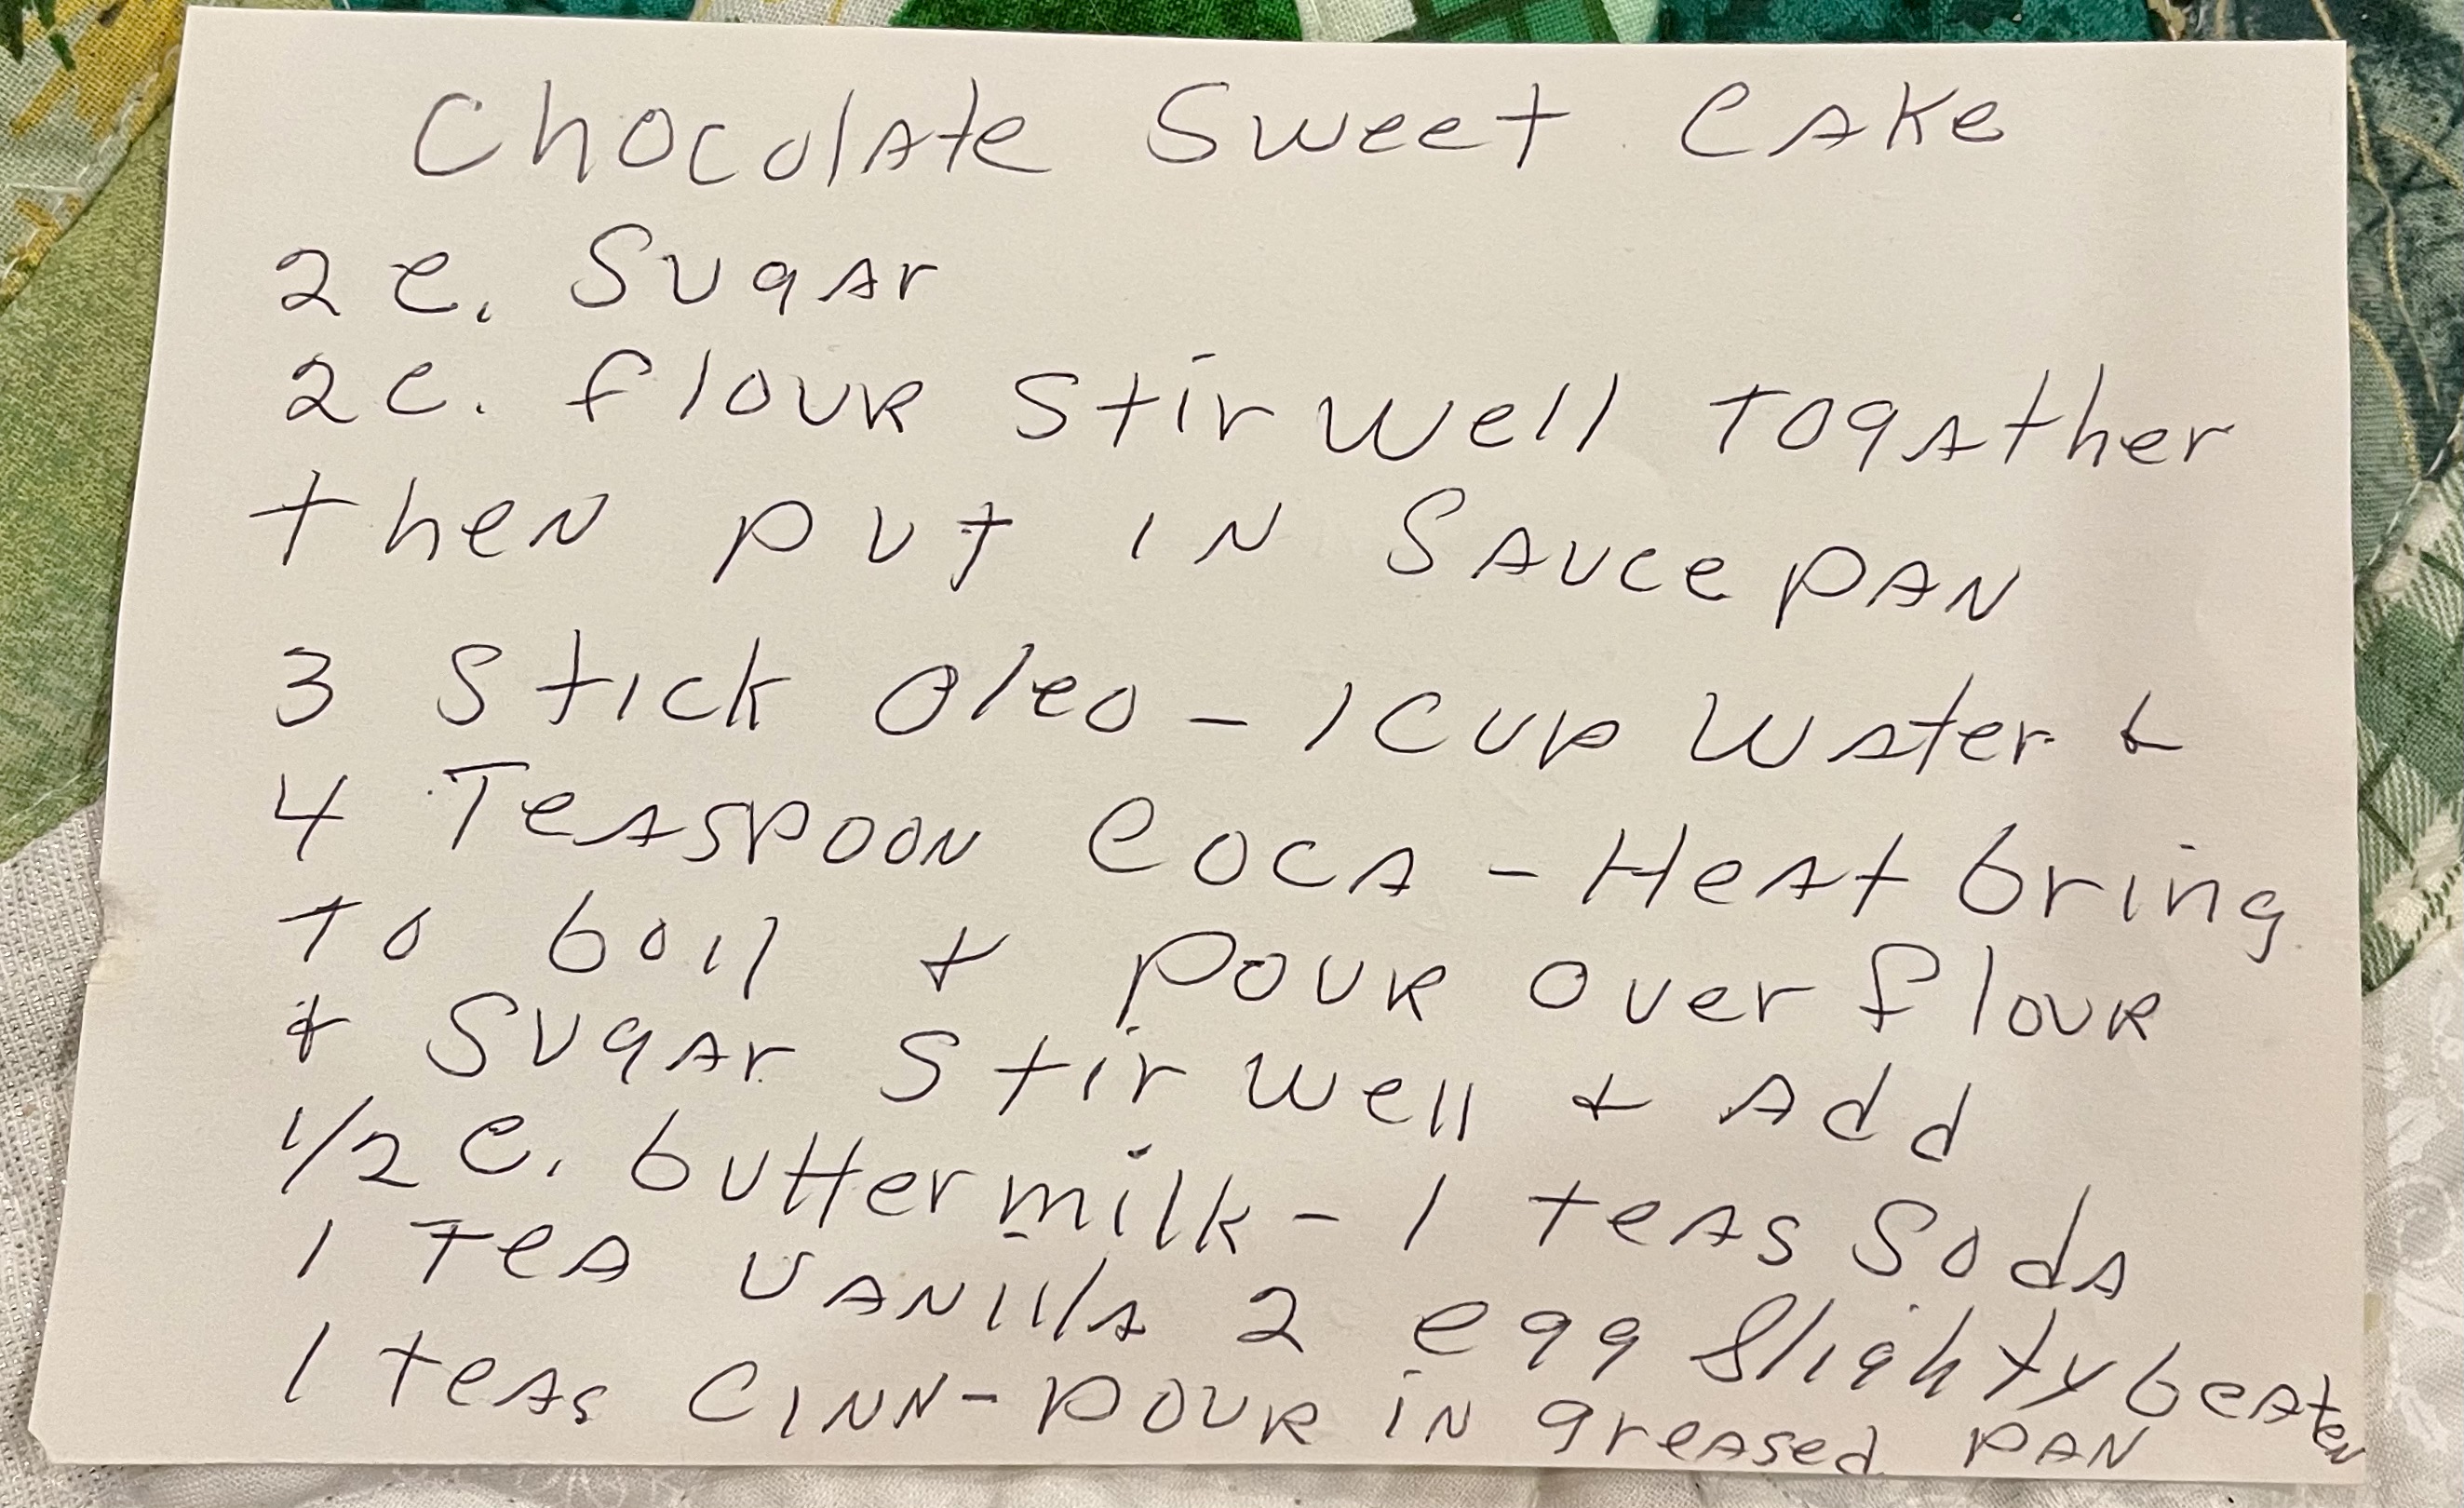 Chocolate Sweet Cake
2 c. Sugar
2 c. flour Stir well Togather
then put in Sauce pan
3 Stick Oleo - 1 Cup Water &
4 Teaspoon Coca - Heat bring
to boil & pour over flour
& Sugar Stir well & Add
1/2 c. buttermilk - 1 teas Soda
1 Tea Vanilla 2 egg Slighty beaten
1 teas Cinn - pour in greased pan